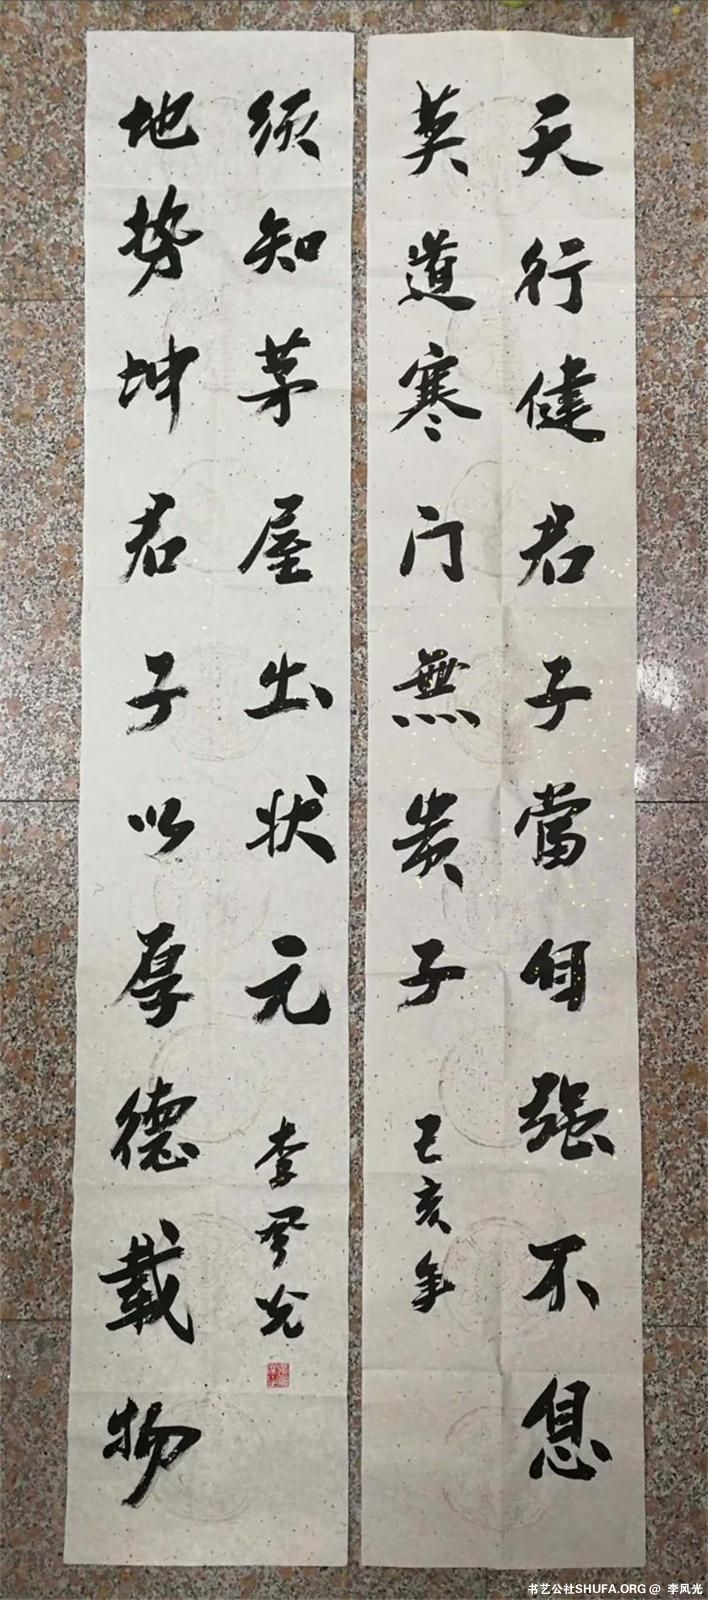 天行健君子當自强不息
莫道寒门無贵子
己亥年
地势坤君子以厚德載物
须知茅屋出状元
李风光
书艺公社SHUFA.ORG @ 李风光